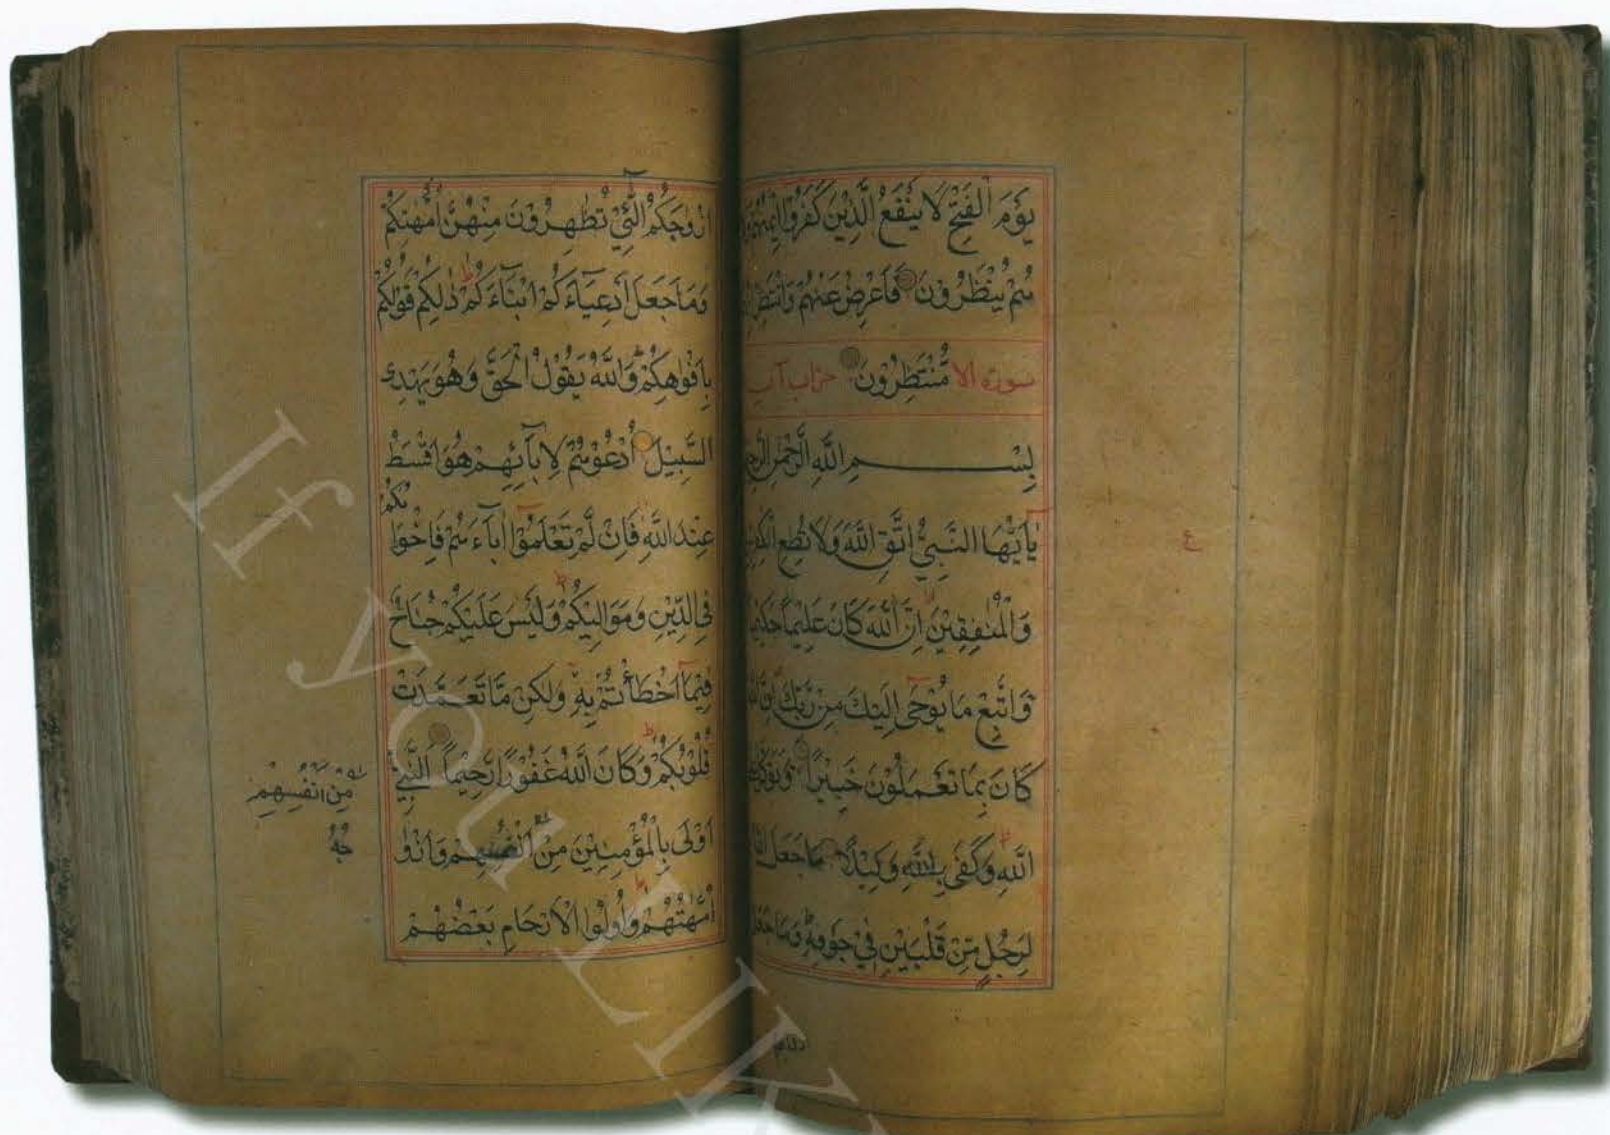 يَوْمَ الْفَتْحِ لَا يَنْفَعُ الَّذِيْنَ كَفَرُوْا اِيْمٰنُهُمْ وَلَا
هُمْ يُنْظَرُوْنَ فَاَعْرِضْ عَنْهُمْ وَانْتَظِرْ
سورة الا مُّنْتَظِرُوْنَ حزاب
بِسْمِ اللّٰهِ الرَّحْمٰنِ الرَّحِيْمِ
يٰٓاَيُّهَا النَّبِيُّ اتَّقِ اللّٰهَ وَلَا تُطِعِ الْكٰفِرِيْنَ
ع
وَالْمُنٰفِقِيْنَ اِنَّ اللّٰهَ كَانَ عَلِيْمًا حَكِيْمًا
وَّاتَّبِعْ مَا يُوْحٰٓى اِلَيْكَ مِنْ رَّبِّكَ اِنَّ اللّٰهَ
كَانَ بِمَا تَعْمَلُوْنَ خَبِيْرًا وَّتَوَكَّلْ
اللّٰهِ وَكَفٰى بِاللّٰهِ وَكِيْلًا مَا جَعَلَ اللّٰهُ
لِرَجُلٍ مِّنْ قَلْبَيْنِ فِيْ جَوْفِهٖ وَمَا جَعَلَ
اَزْوٰجَكُمُ الّٰٓئِيْ تُظٰهِرُوْنَ مِنْهُنَّ اُمَّهٰتِكُمْ
وَمَا جَعَلَ اَدْعِيَآءَكُمْ اَبْنَآءَكُمْ ذٰلِكُمْ قَوْلُكُمْ
بِاَفْوٰهِكُمْ وَاللّٰهُ يَقُوْلُ الْحَقَّ وَهُوَ يَهْدِى
السَّبِيْلَ اُدْعُوْهُمْ لِاٰبَآئِهِمْ هُوَ اَقْسَطُ
عِنْدَ اللّٰهِ فَاِنْ لَّمْ تَعْلَمُوْٓا اٰبَآءَهُمْ فَاِخْوَا
نُكُمْ
فِى الدِّيْنِ وَمَوَالِيْكُمْ وَلَيْسَ عَلَيْكُمْ جُنَاحٌ
فِيْمَآ اَخْطَاْتُمْ بِهٖ وَلٰكِنْ مَّا تَعَمَّدَتْ
قُلُوْبُكُمْ وَكَانَ اللّٰهُ غَفُوْرًا رَّحِيْمًا اَلنَّبِيُّ
اَوْلٰى بِالْمُؤْمِنِيْنَ مِنْ اَنْفُسِهِمْ وَاَزْوٰ
مِنْ اَنْفُسِهِمْ
جُهٗٓ
اُمَّهٰتُهُمْ وَاُولُوا الْاَرْحَامِ بَعْضُهُمْ
If you LIK